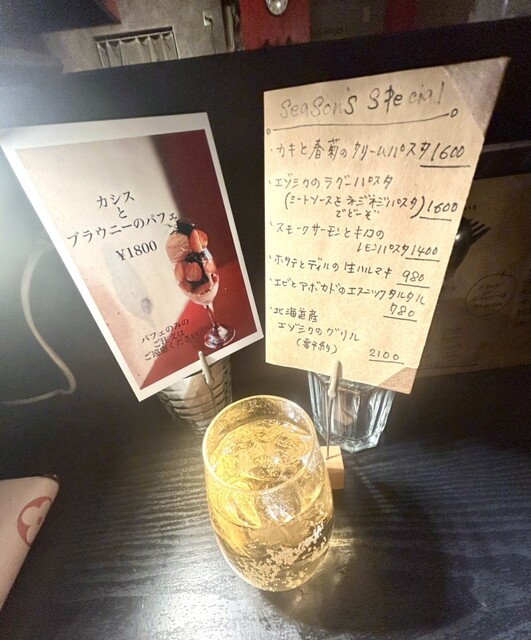 カシス
と
ブラウニーのパフェ
¥1800
パフェのみの
ご注文は
ご遠慮ください
Season's Special
・カキと春菊のクリームパスタ 1600
・エゾシカのラグーパスタ
(ミートソースをネジネジパスタ) 1600
でどーぞ
・スモークサーモンとキノコの
レモンパスタ 1400
・ホタテとディルの生ハルマキ 980
・エビとアボカドのエスニックタルタル
780
・北海道産
エゾシカのグリル
2100